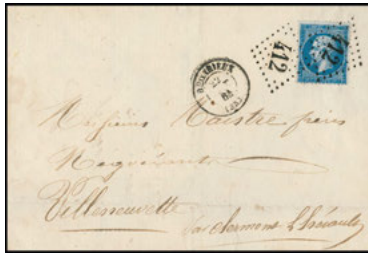 412
412
BÉDARIEUX
(33)
Messieurs Maistre frères
Négociants
Villeneuvette
par Clermont L'hérault